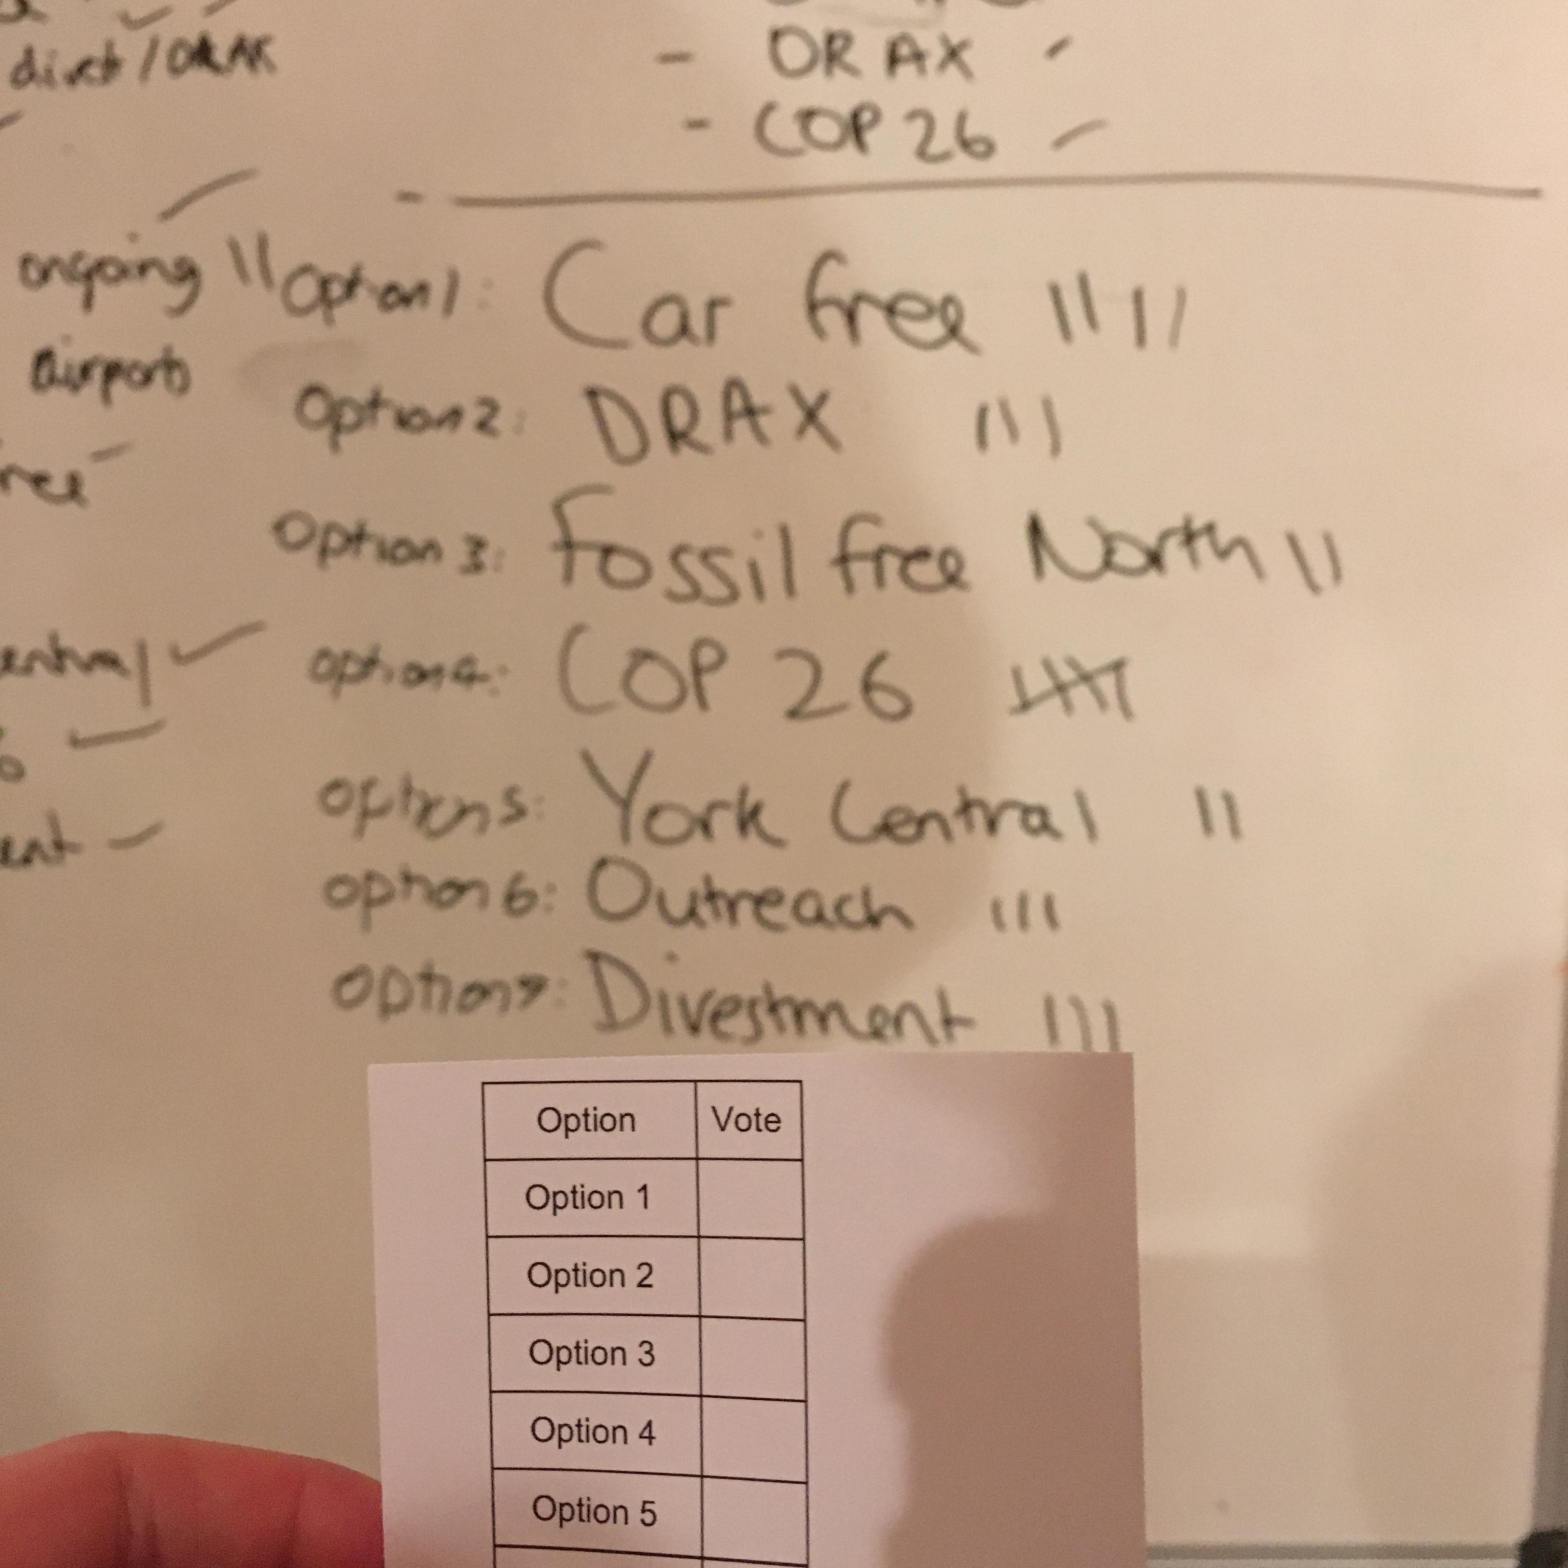 direct/DRAX
- DRAX
- COP 26
ongoing
airports
Option 1: Car free ||||
Option 2: DRAX |||
Option 3: Fossil free North ||
option 4: COP 26 卌
option 5: York Central ||
option 6: Outreach |||
option 7: Divestment |||
Option Vote
Option 1
Option 2
Option 3
Option 4
Option 5